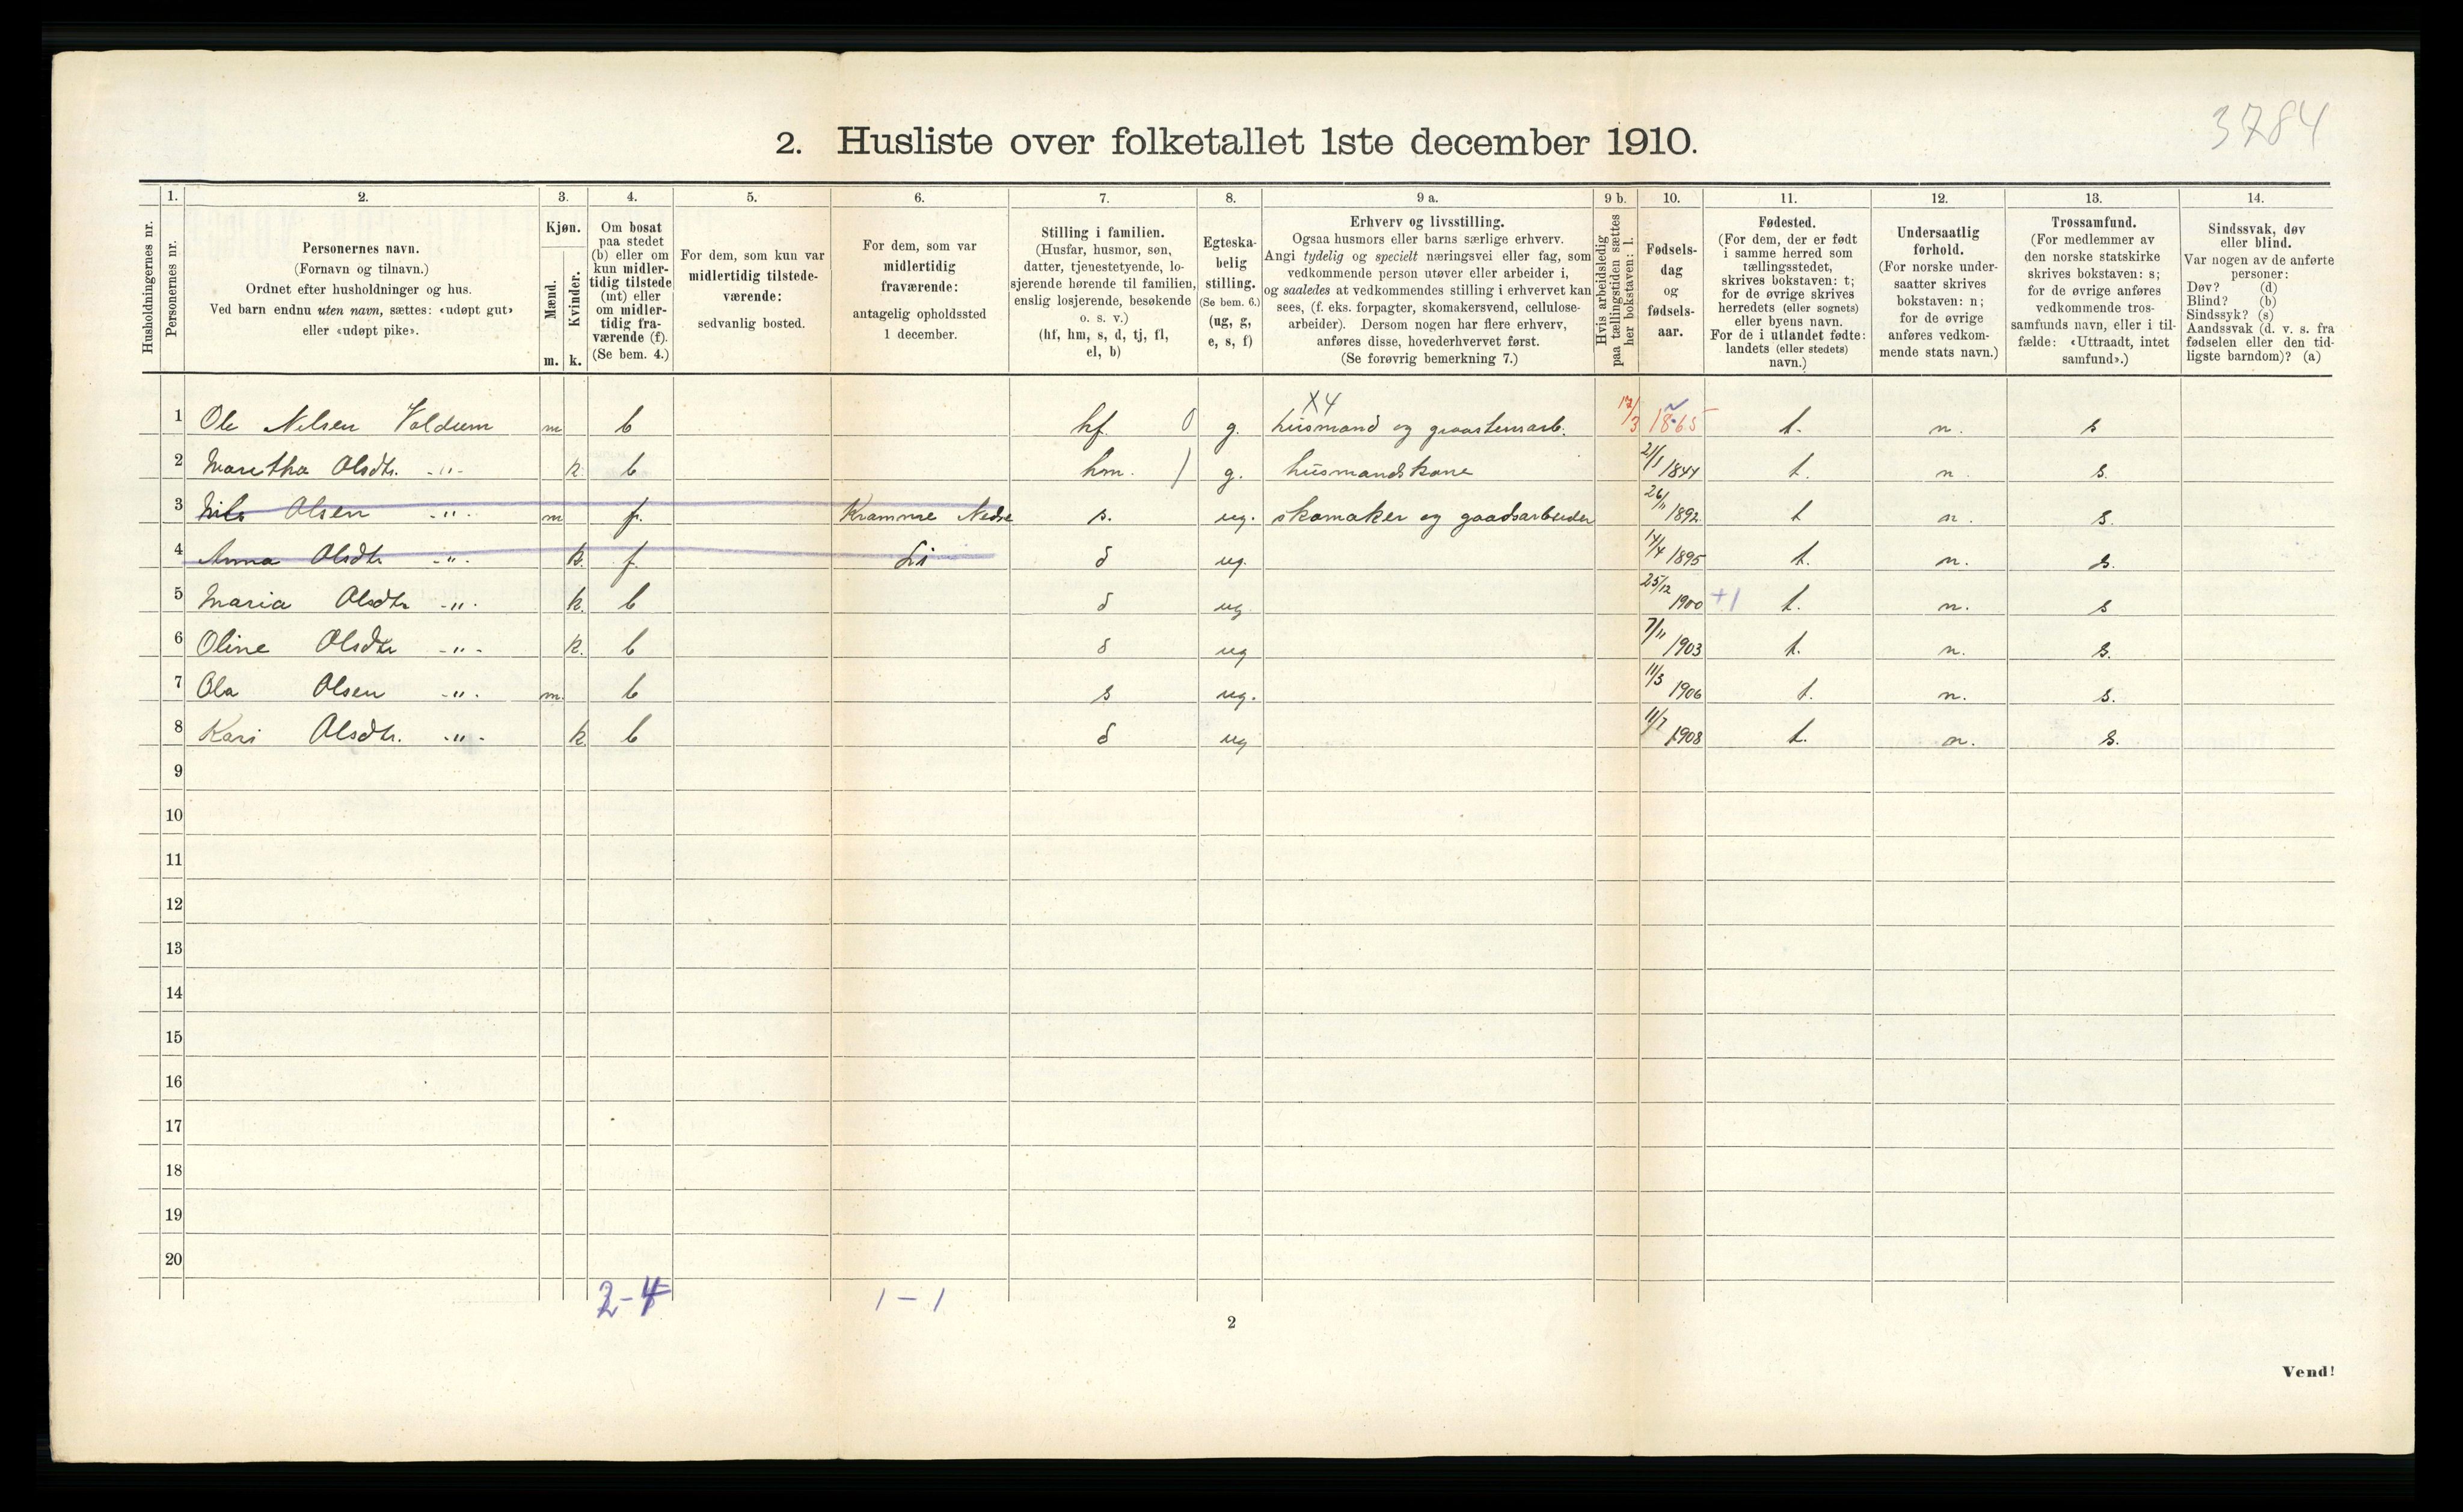 3784
2. Husliste over folketallet 1ste december 1910.
Husholdningernes nr.
1.
Personernes nr.
2.
Personernes navn.
(Fornavn og tilnavn.)
Ordnet efter husholdninger og hus.
Ved barn endnu uten navn, sættes: «udøpt gut»
eller «udøpt pike».
3.
Kjøn.
Mænd.
Kvinder.
m. k.
4.
Om bosat
paa stedet
(b) eller om
kun midler-
tidig tilstede
(mt) eller
om midler-
tidig fra-
værende (f).
(Se bem. 4.)
5.
For dem, som kun var
midlertidig tilstede-
værende:
sedvanlig bosted.
6.
For dem, som var
midlertidig
fraværende:
antagelig opholdssted
1 december.
7.
Stilling i familien.
(Husfar, husmor, søn,
datter, tjenestetyende, lo-
sjerende hørende til familien,
enslig losjerende, besøkende
o. s. v.)
(hf, hm, s, d, tj, fl,
el, b)
8.
Egteska-
belig
stilling.
(Se bem. 6.)
(ug, g,
e, s, f)
9 a.
Erhverv og livsstilling.
Ogsaa husmors eller barns særlige erhverv.
Angi tydelig og specielt næringsvei eller fag, som
vedkommende person utøver eller arbeider i,
og saaledes at vedkommendes stilling i erhvervet kan
sees, (f. eks. forpagter, skomakersvend, cellulose-
arbeider). Dersom nogen har flere erhverv,
anføres disse, hovederhvervet først.
(Se forøvrig bemerkning 7.)
9 b.
Hvis arbeidsledig
paa tællingstiden sættes
her bokstaven: l.
10.
Fødsels-
dag
og
fødsels-
aar.
11.
Fødested.
(For dem, der er født
i samme herred som
tællingsstedet,
skrives bokstaven: t;
for de øvrige skrives
herredets (eller sognets)
eller byens navn.
For de i utlandet fødte:
landets (eller stedets)
navn.)
12.
Undersaatlig
forhold.
(For norske under-
saatter skrives
bokstaven: n;
for de øvrige
anføres vedkom-
mende stats navn.)
13.
Trossamfund.
(For medlemmer av
den norske statskirke
skrives bokstaven: s;
for de øvrige anføres
vedkommende tros-
samfunds navn, eller i til-
fælde: «Uttraadt, intet
samfund».)
14.
Sindssvak, døv
eller blind.
Var nogen av de anførte
personer:
Døv? (d)
Blind? (b)
Sindssyk? (s)
Aandssvak (d. v. s. fra
fødselen eller den tid-
ligste barndom)? (a)
X4
1 Ole Nilsen Voldum m b hf 0 g. husmand og graastensarb. 17/3 1865 t. n. s
2 Maretha Olsdtr. -"- k. b hm. ) g. husmandskone 21/1 1844 t. n. s.
3 Nils Olsen -"- m f. Kramme Nedre s. ug. skomaker og gaadsarbeider 26/11 1892 t n. s.
4 Anna Olsdtr -"- k. f. Li d ug. 14/4 1895 t. n. s.
5 Maria Olsdtr -"- k. b d ug. 25/12 1900 +1 t. n. s
6 Oline Olsdtr -"- k. b d ug 7/11 1903 t. n. s.
7 Ola Olsen -"- m. b s ug. 11/3 1906 t. n. s.
8 Kari Olsdtr. -"- k. b d ug 11/7 1908 t. n. s.
9
10
11
12
13
14
15
16
17
18
19
20
2-4 1-1
2
Vend!